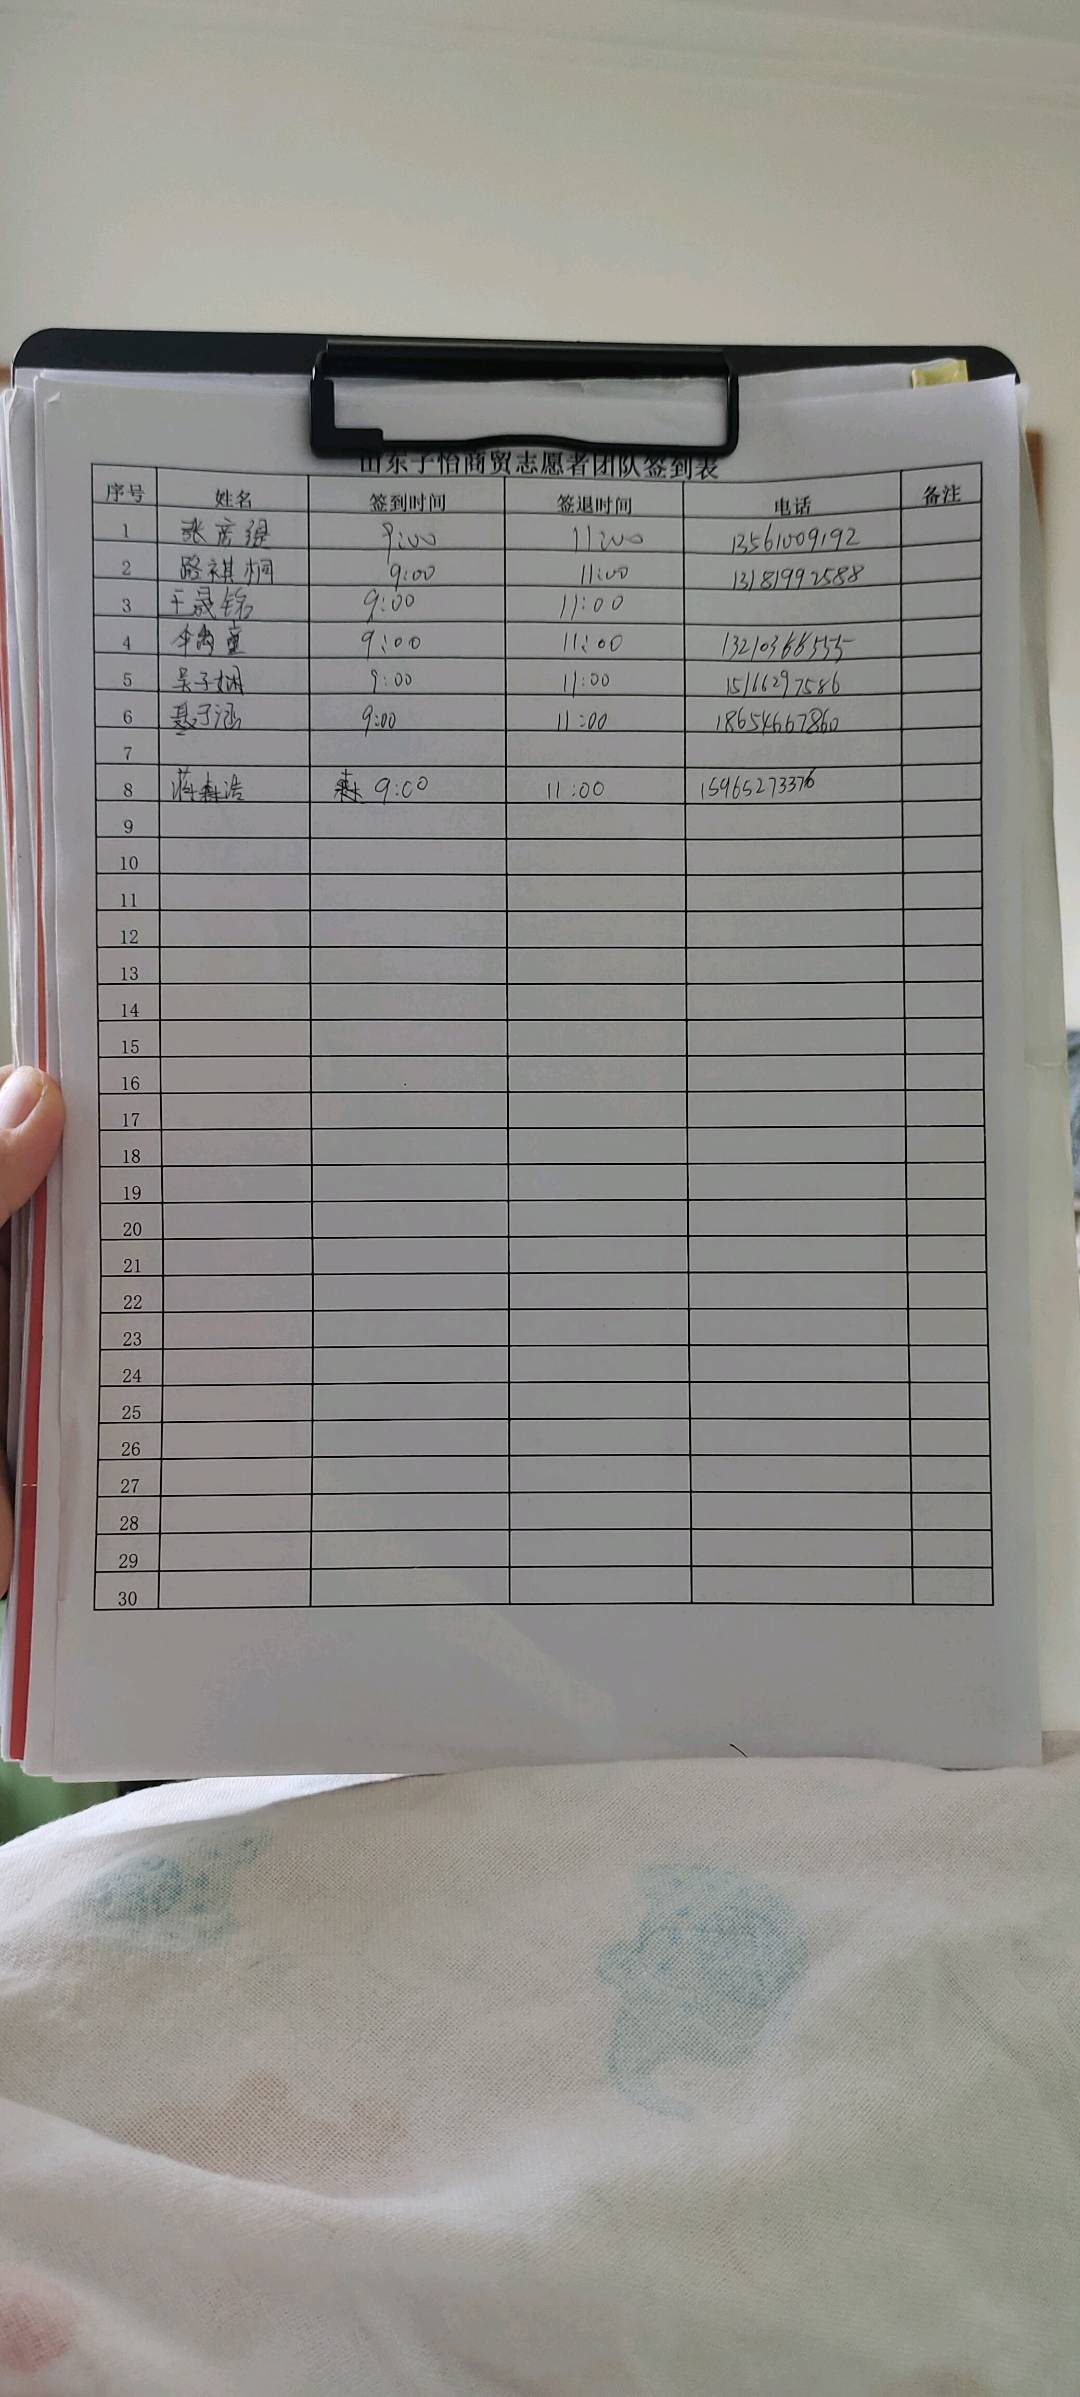 山东子怡商贸志愿者团队签到表
序号 姓名 签到时间 签退时间 电话 备注
1 张彦缇 9:00 11:00 13561009192
2 路祺桐 9:00 11:00 13181992588
3 晟铭 9:00 11:00
4 李 童 9:00 11:00 13210366555
5 吴子娴 9:00 11:00 15166297586
6 聂子涵 9:00 11:00 18654667860
7
8 蒋森浩 9:00 11:00 15965273376
9
10
11
12
13
14
15
16
17
18
19
20
21
22
23
24
25
26
27
28
29
30